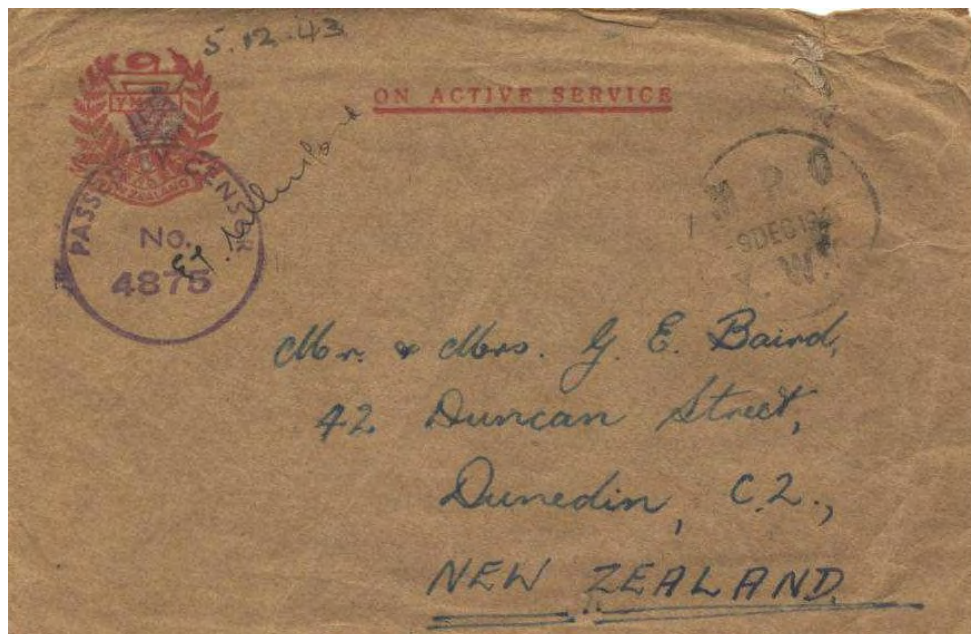 5.12.43
YMCA
ON ACTIVE SERVICE
PASSED BY CENSOR
No.
4875
M P O
9 DEC 19
W.
Mr. & Mrs. G. E. Baird,
42 Duncan Street,
Dunedin, C.2.,
NEW ZEALAND.